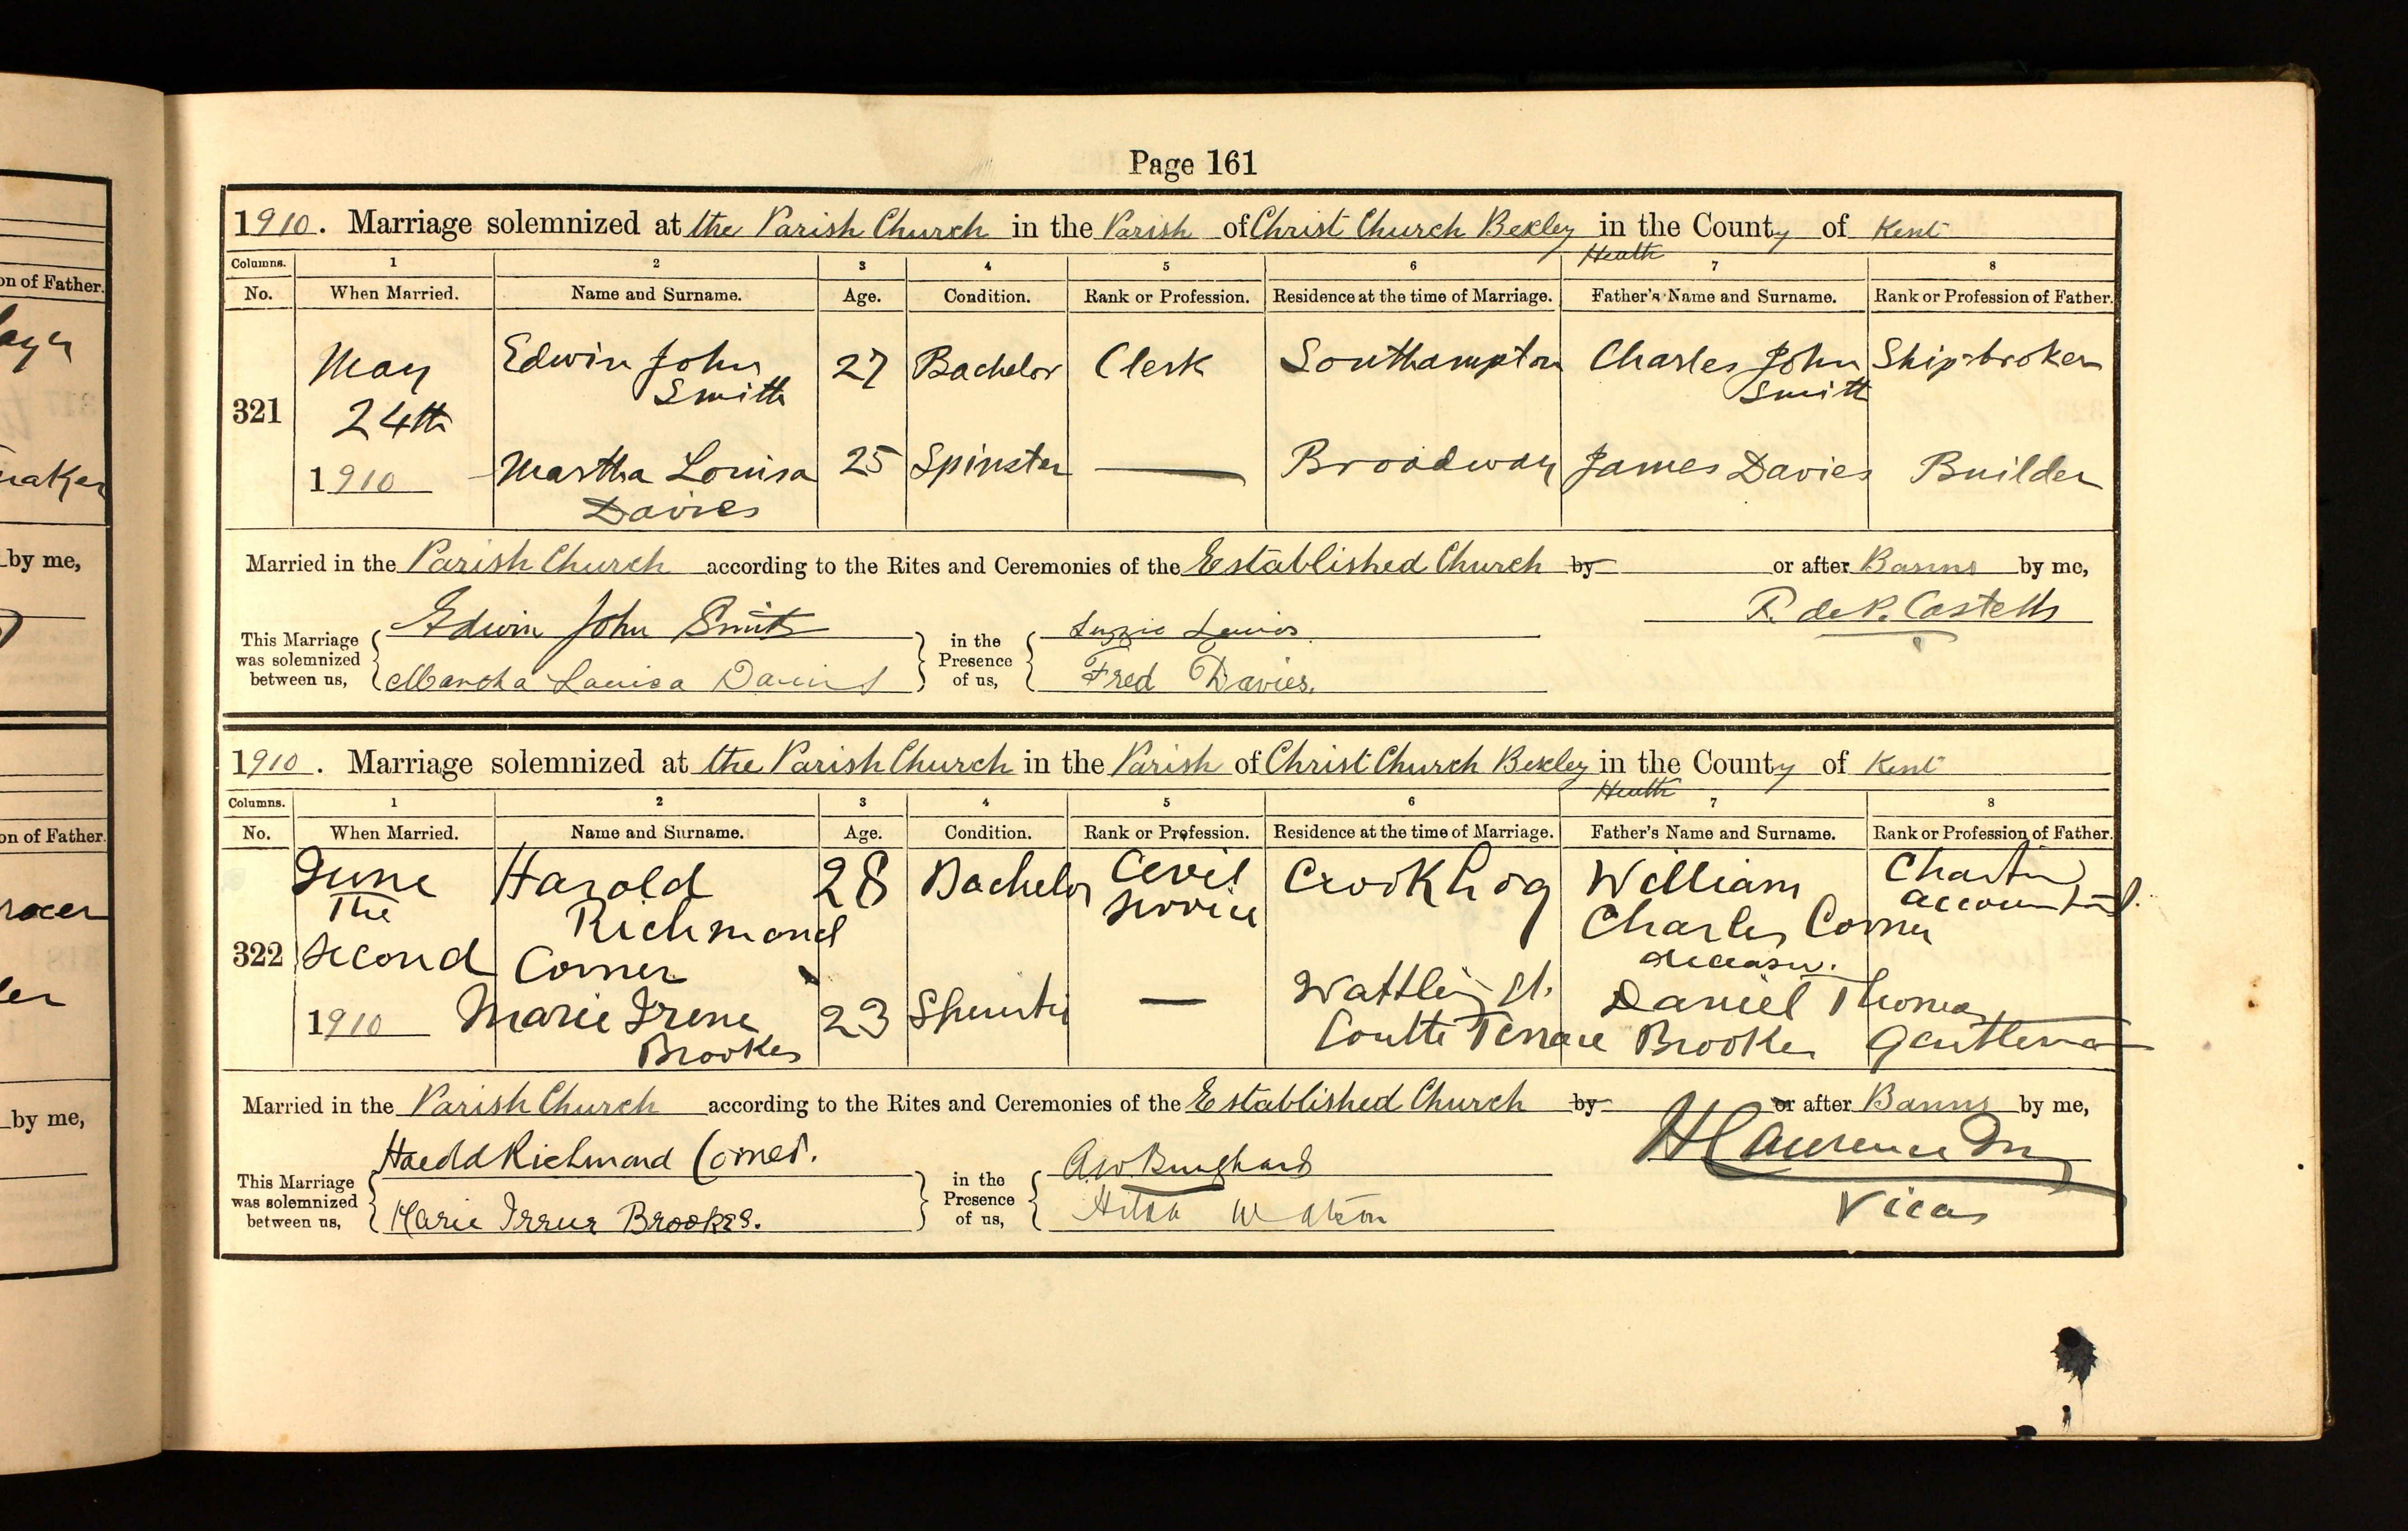 Page 161
1910. Marriage solemnized at the Parish Church in the Parish of Christ Church Bexley Heath in the County of Kent
Columns. 1 2 3 4 5 6 7 8
No. When Married. Name and Surname. Age. Condition. Rank or Profession. Residence at the time of Marriage. Father's Name and Surname. Rank or Profession of Father.
321 May 24th 1910
Edwin John Smith 27 Bachelor Clerk Southampton Charles John Smith Ship-broker
Martha Louisa Davies 25 Spinster — Broadway James Davies Builder
Married in the Parish Church according to the Rites and Ceremonies of the Established Church by or after Banns by me,
R. de P. Castells
This Marriage was solemnized between us, Edwin John Smith
Martha Louisa Davies
in the Presence of us, Lizzie Lewis
Fred Davies.
1910. Marriage solemnized at the Parish Church in the Parish of Christ Church Bexley Heath in the County of Kent
Columns. 1 2 3 4 5 6 7 8
No. When Married. Name and Surname. Age. Condition. Rank or Profession. Residence at the time of Marriage. Father's Name and Surname. Rank or Profession of Father.
322 June The second 1910
Harold Richmond Corner 28 Bachelor Civil Service Crook Log William Charles Corner deceased. Charter accountant.
Marie Irene Brookes 23 Spinster — Wattling St. Coutts Terrace Daniel Thomas Brookes Gentleman
Married in the Parish Church according to the Rites and Ceremonies of the Established Church by or after Banns by me,
Vicar
This Marriage was solemnized between us, Harold Richmond Corner.
Marie Irene Brookes.
in the Presence of us,
Hilda Watson
on of Father.
by me,
on of Father.
by me,